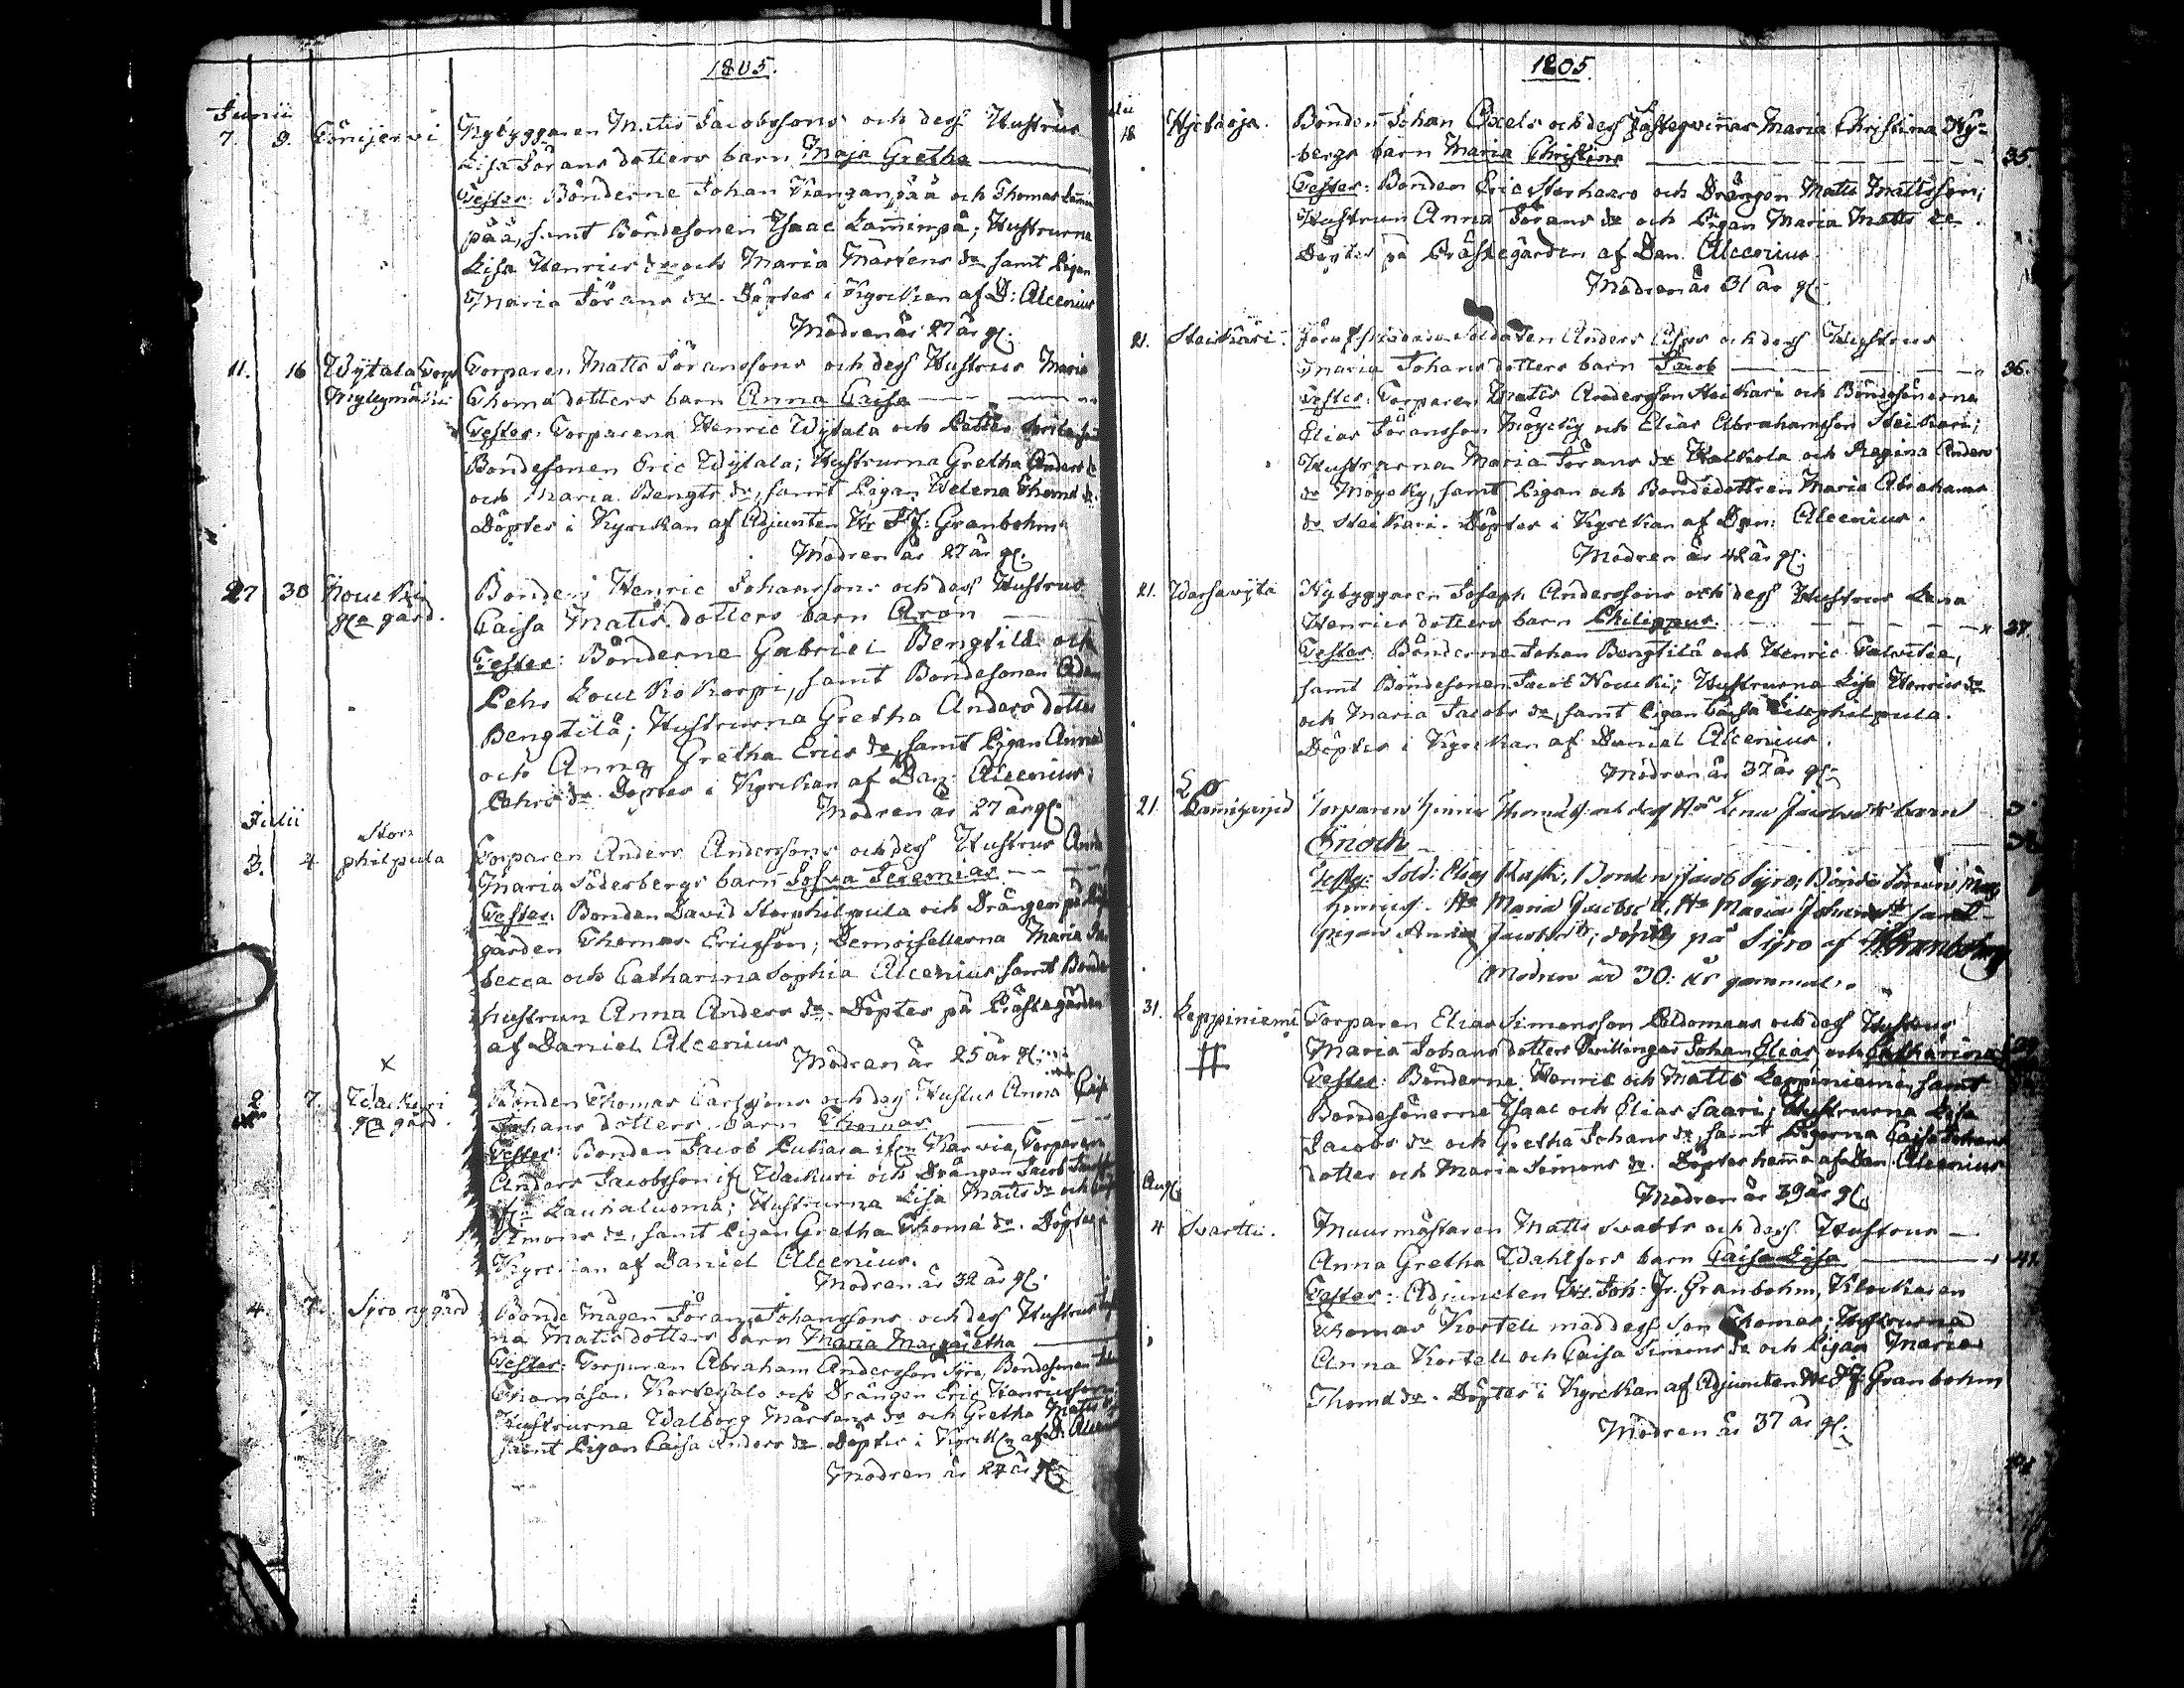 1805.
Junii
7. 9. Könijervi Nybyggaren Matts Jacobssons och dess Hustrus
Lisa Jörans dotters barn Maja Gretha
Testes: Bönderne Johan Kanganpää och Thomas Lamin
pää, samt Bondesonen Isaac Laminpä; Hustrurna
Lisa Henrics dr och Maria Mårtens dr samt Pigan
Maria Jörans dr. Döptes i Kyrckan af D: Alcenius
Modren är 27 år gl.
11. 16 Wytala torp Torparen Matts Jöranssons och dess Hustrus Maria
Myllymäki Thomædotters barn Anna Caisa
Testes: Torparena Henric Wytala och Petter
Bondesonen Eric Wytala; Hustrurna Gretha Anders dr
och Maria Bengts dr, samt Pigan Helena Thomæ dr.
Döptes i Kyrckan af Adjuncten Hr J J: Granbohm
Modren är 27 år gl.
27 30 Koucki Bonden Henric Johanssons och dess Hustrus
gla gård. Caisa Matts dotters barn Aron
Testes: Bönderne Gabriel Bengtilä och
Pehr Louckokorpi, samt Bondesonen Adam
Bengtilä; Hustrurna Gretha Anders dotter
och Anna Gretha Erics dr, samt Pigan Anna
Pehrs dr. Döptes i Kyrckan af Dan: Alcenius.
Modren är 27 år gl.
Julii
3. 4 Stor philpula Torparen Anders Anderssons och dess Hustrus Anna
Maria Söderbergs barn Josva Jeremias
Testes: Bonden David Storphilpula och Drängen på Präst
gården Thomas Ericsson; Demoisellerna Maria Re
becca och Catharina Sophia Alcenius, samt Bonde
hustrun Anna Anders dr. Döptes på Prästegården
af Daniel Alcenius
Modren är 25 år gl.
x
2 7. Wackuri Bonden Thomas Carlssons och dess Hustrus Anna Caisa
gla gård. Johans dotters barn Thomas
Testes: Bonden Jacob Luhara ifrn Karvia, Torparen
Anders Jacobsson ifr Wackuri och Drängen Jacob
ifrn Lauhaluoma; Hustrurna Lisa Matts dr och
Simons dr, samt Pigan Gretha Thomæ dr. Döptes i
Kyrckan af Daniel Alcenius.
Modren är 32 år gl.
4. 7. Syro nygård Bonde Mågen Jöran Johanssons och dess Hustrus
na Matts dotters barn Maria Margaretha
Testes: Torparen Abraham Andersson Syro, Bondesonen
Thomasson Kortesalo och Drängen Eric Henricsson
Hustrurna Walborg Mårtens dr och Gretha Matts dr
samt Pigan Caisa Anders dr. Döptes i Kyrckn af D. Alcenius
Modren är 24 år gl.
1805.
18 Hjetaoja. Bonden Johan Axels och dess Fästeqvinnas Maria Christina Ny-
bergs barn Maria Christina 35
Testes: Bonden Eric Storhaaro och Drängen Matts Mattsson;
Hustrun Anna Jörans dr och Pigan Maria Matts dr.
Döptes på Prästegården af Dan. Alcenius
Modren är 31 år gl.
21. Steickari. Soldaten Anders Asps och dess Hustrus
Maria Johans dotters barn Jacob 36.
Testes: Torparen Matts Andersson Steickari och Bondesönerna
Elias Jöransson Möycky och Elias Abrahamsson Steickari;
Hustrurna Maria Jörans dr Walkola och Regina Anders
dr Möycky, samt Pigan och Bondedottren Maria Abrahams
dr Steickari. Döptes i Kyrckan af Dan: Alcenius.
Modren är 42 år gl.
21. Warsawijta Nybyggaren Joseph Anderssons och dess Hustrus Lena
Henrics dotters barn Philippus. 37.
Testes: Bönderne Johan Bengtilä och Henric Talvitee,
samt Bondesonen Jacob Koucki; Hustrurna Lisa Henrics dr
och Maria Jacobs dr, samt Pigan Caisa Lillphilpula.
Döptes i Kyrckan af Daniel Alcenius.
Modren är 37 år gl.
21. Torparen Hinric Thomæs: och dess Ho Lena Jacobs dr barn
Enoch
Testes: Sold: Elias Rask, Bonden Jacob Syro, Bonde Sonen
Hinrics. Ho Maria Jacobs dr, Ho Maria Johans dr samt
pigan Anna Jacobs dr; döptes på Syro af JJGranbohm
Modren är 30: år gammal.
31. Leppiniemi Torparen Elias Simonsson Peldomaas och dess Hustrus
Maria Johans dotters Tvillingar Johan Elias, och Catharina
Testes: Bönderne Henric och Matts Leppiniemi, samt
Bondesönerne Isaac och Elias Saari; Hustrurna Lisa
Jacobs dr och Gretha Johans dr, samt Pigorna Caisa Johans
dotter och Maria Simons dr. Döptes hemma af Dan. Alcenius
Modren är 39 år gl.
Aug.
4 Svartti. Muurmästaren Matts Svartts och dess Hustrus
Anna Gretha Wahlfors barn Caisa Lisa 41.
Testes: Adjuncten Hr. Joh: Jr. Granbohm, Klockaren
Thomas Kortell med dess Son Thomas; Hustrurna
Anna Kortell och Caisa Simons dr och Pigan Maria
Thomæ dr. Döptes i Kyrckan af Adjuncten Hr JJ: Granbohm
Modren är 37 år gl.